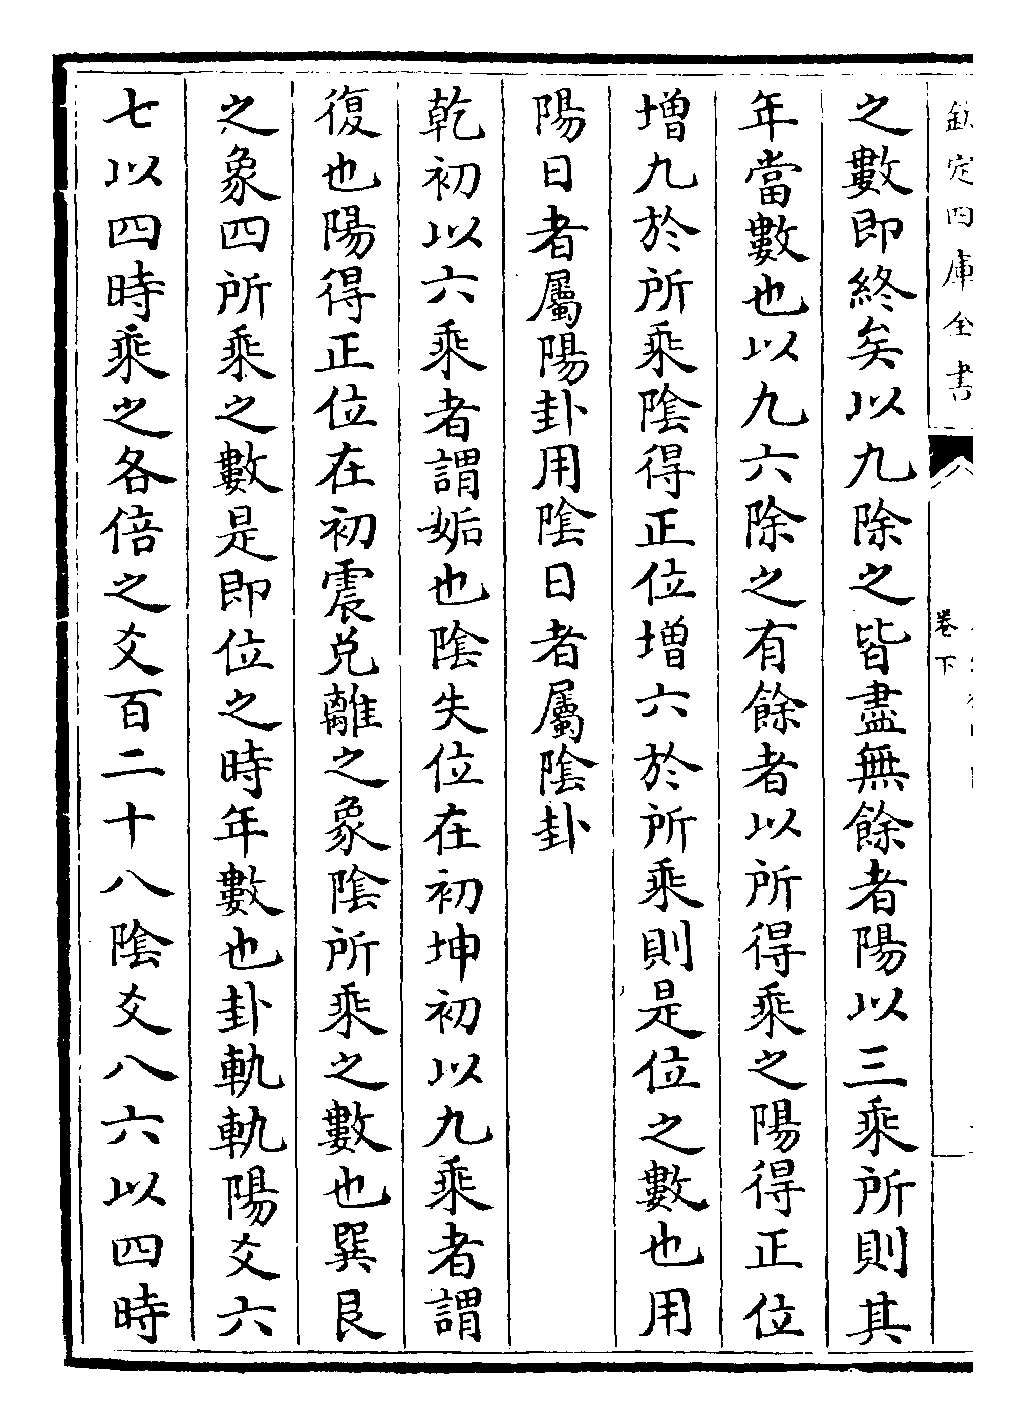 欽定四庫全書
卷下
之數即終矣以九除之皆盡無餘者陽以三乘所則其
年當數也以九六除之有餘者以所得乘之陽得正位
增九於所乘陰得正位增六於所乘則是位之數也用
陽日者屬陽卦用陰日者屬陰卦
乾初以六乘者謂姤也陰失位在初坤初以九乘者謂
復也陽得正位在初震兌離之象陰所乘之數也巽艮
之象四所乘之數是即位之時年數也卦軌軌陽爻六
七以四時乘之各倍之爻百二十八陰爻八六以四時